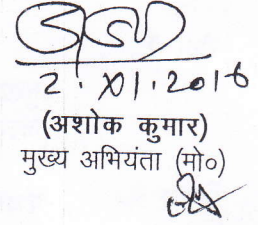 2. XI. 2016
(अशोक कुमार)
मुख्य अभियंता (मो०)